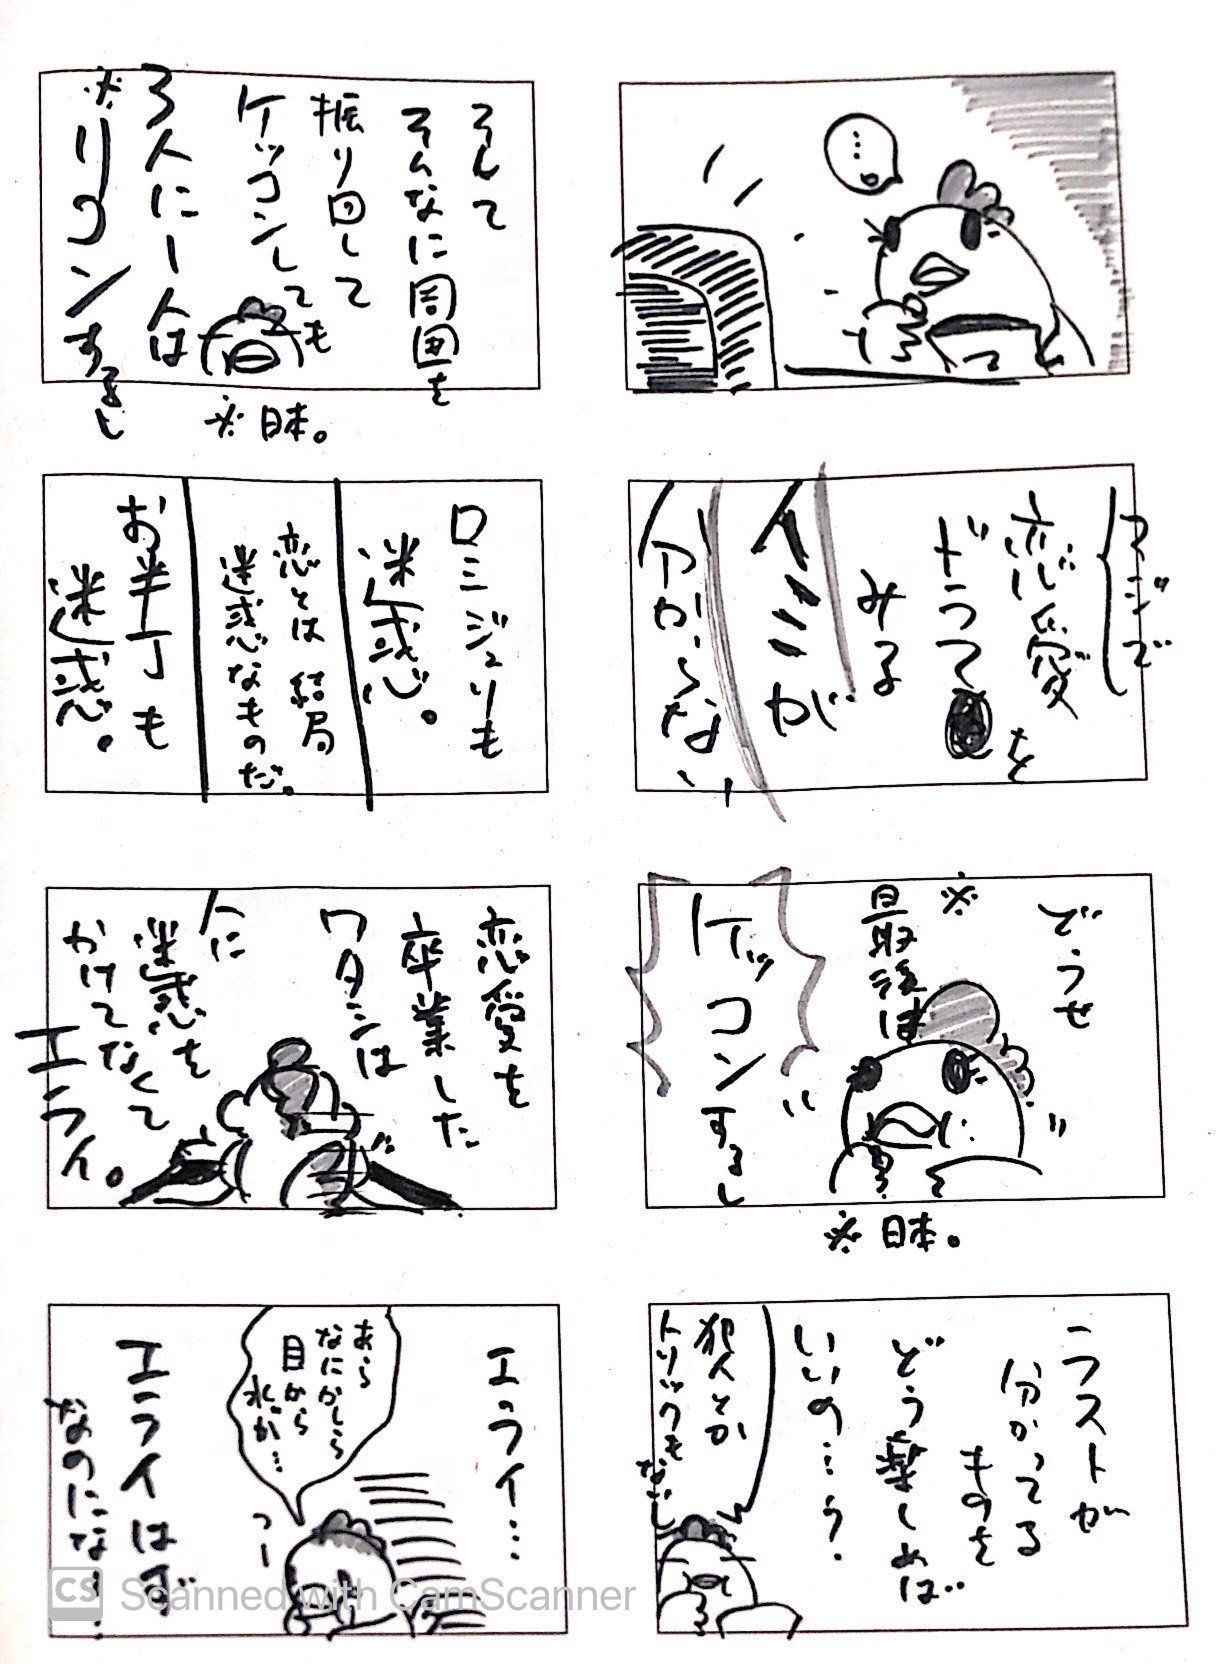 …
マジで
恋愛
ドラマを
みる
イミが
分からない
どうせ
※
最後は
ケッコンするし
※日本。
ラストが
分かってる
ものを
どう楽しめば
いいの…？
犯人とか
トリックもないし
そんで
そんなに周囲を
振り回して
ケッコンしても
3人に1人は
※リコンするし
※日本。
ロミジュリも
迷惑。
恋とは結局
迷惑なものだ。
お半丁も
迷惑。
恋愛を
卒業した
ワタシは
人に
迷惑を
かけてなくて
エライ。
エライ…
あら
なにかしら
目から
水が…
つー
エライはず
なのにな…
CS Scanned with CamScanner